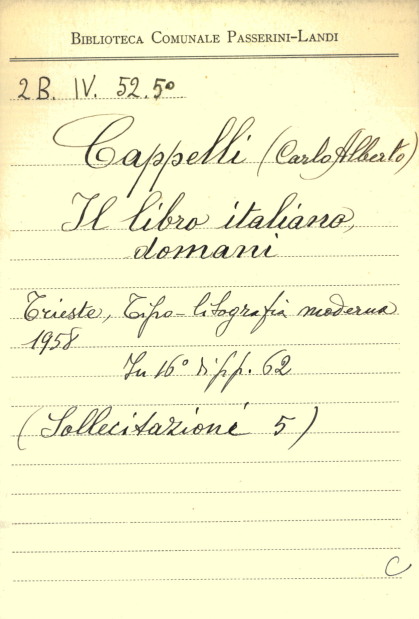 BIBLIOTECA COMUNALE PASSERINI-LANDI
2B. IV. 52.5°
Cappelli (Carlo Alberto)
Il libro italiano,
domani
Trieste, Tipo-litografia moderna
1958
In 16° di pp. 62
(Sollecitazioni 5)
C